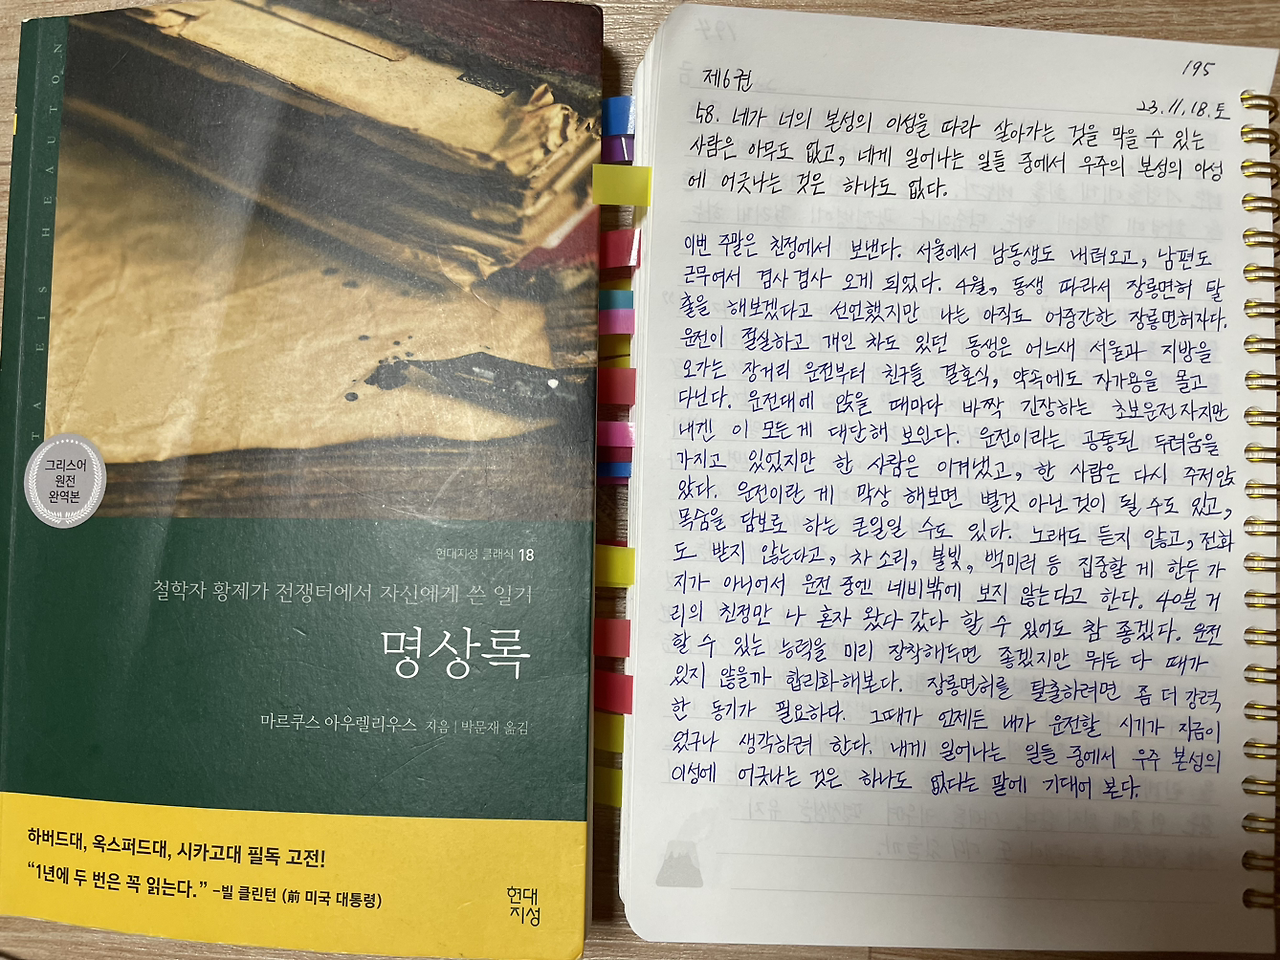 TA EIS HEAUTON
그리스어
원전
완역본
현대지성 클래식 18
철학자 황제가 전쟁터에서 자신에게 쓴 일기
명상록
마르쿠스 아우렐리우스 지음 | 박문재 옮김
하버드대, 옥스퍼드대, 시카고대 필독 고전!
“1년에 두 번은 꼭 읽는다.” –빌 클린턴 (前 미국 대통령)
현대
지성
195
제6권
23.11.18.토
58. 네가 너의 본성의 이성을 따라 살아가는 것을 막을 수 있는
사람은 아무도 없고, 네게 일어나는 일들 중에서 우주의 본성의 이성
에 어긋나는 것은 하나도 없다.
이번 주말은 친정에서 보낸다. 서울에서 남동생도 내려오고, 남편도
근무여서 겸사겸사 오게 되었다. 4월, 동생 따라서 장롱면허 탈
출을 해보겠다고 선언했지만 나는 아직도 어중간한 장롱면허자다.
운전이 절실하고 개인 차도 있던 동생은 어느새 서울과 지방을
오가는 장거리 운전부터 친구들 결혼식, 약속에도 자가용을 몰고
다닌다. 운전대에 앉을 때마다 바짝 긴장하는 초보운전자지만
내겐 이 모든게 대단해 보인다. 운전이라는 공통된 두려움을
가지고 있었지만 한 사람은 이겨냈고, 한 사람은 다시 주저앉
았다. 운전이란 게 막상 해보면 별것 아닌 것이 될 수도 있고,
목숨을 담보로 하는 큰일일 수도 있다. 노래도 듣지 않고, 전화
도 받지 않는다고, 차 소리, 불빛, 백미러 등 집중할 게 한두 가
지가 아니어서 운전 중엔 네비밖에 보지 않는다고 한다. 40분 거
리의 친정만 나 혼자 왔다 갔다 할 수 있어도 참 좋겠다. 운전
할 수 있는 능력을 미리 장착해두면 좋겠지만 뭐든 다 때가
있지 않을까 합리화해본다. 장롱면허를 탈출하려면 좀 더 강력
한 동기가 필요하다. 그때가 언제든 내가 운전할 시기가 지금이
었구나 생각하려 한다. 내게 일어나는 일들 중에서 우주 본성의
이성에 어긋나는 것은 하나도 없다는 말에 기대어 본다.